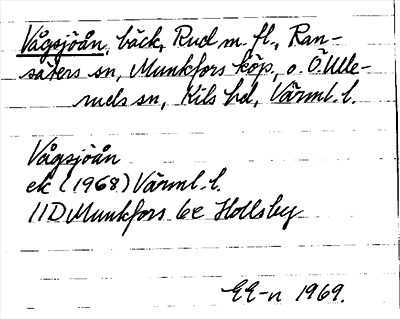 Vågsjöån, bäck, Rud m. fl., Ran-
säters sn, Munkfors köp. o. Ö. Ulle-
ruds sn, Kils hd, Värml. l.
Vågsjöån
ek (1968) Värml. l.
11D Munkfors 6e Hollsby
EE-n 1969.